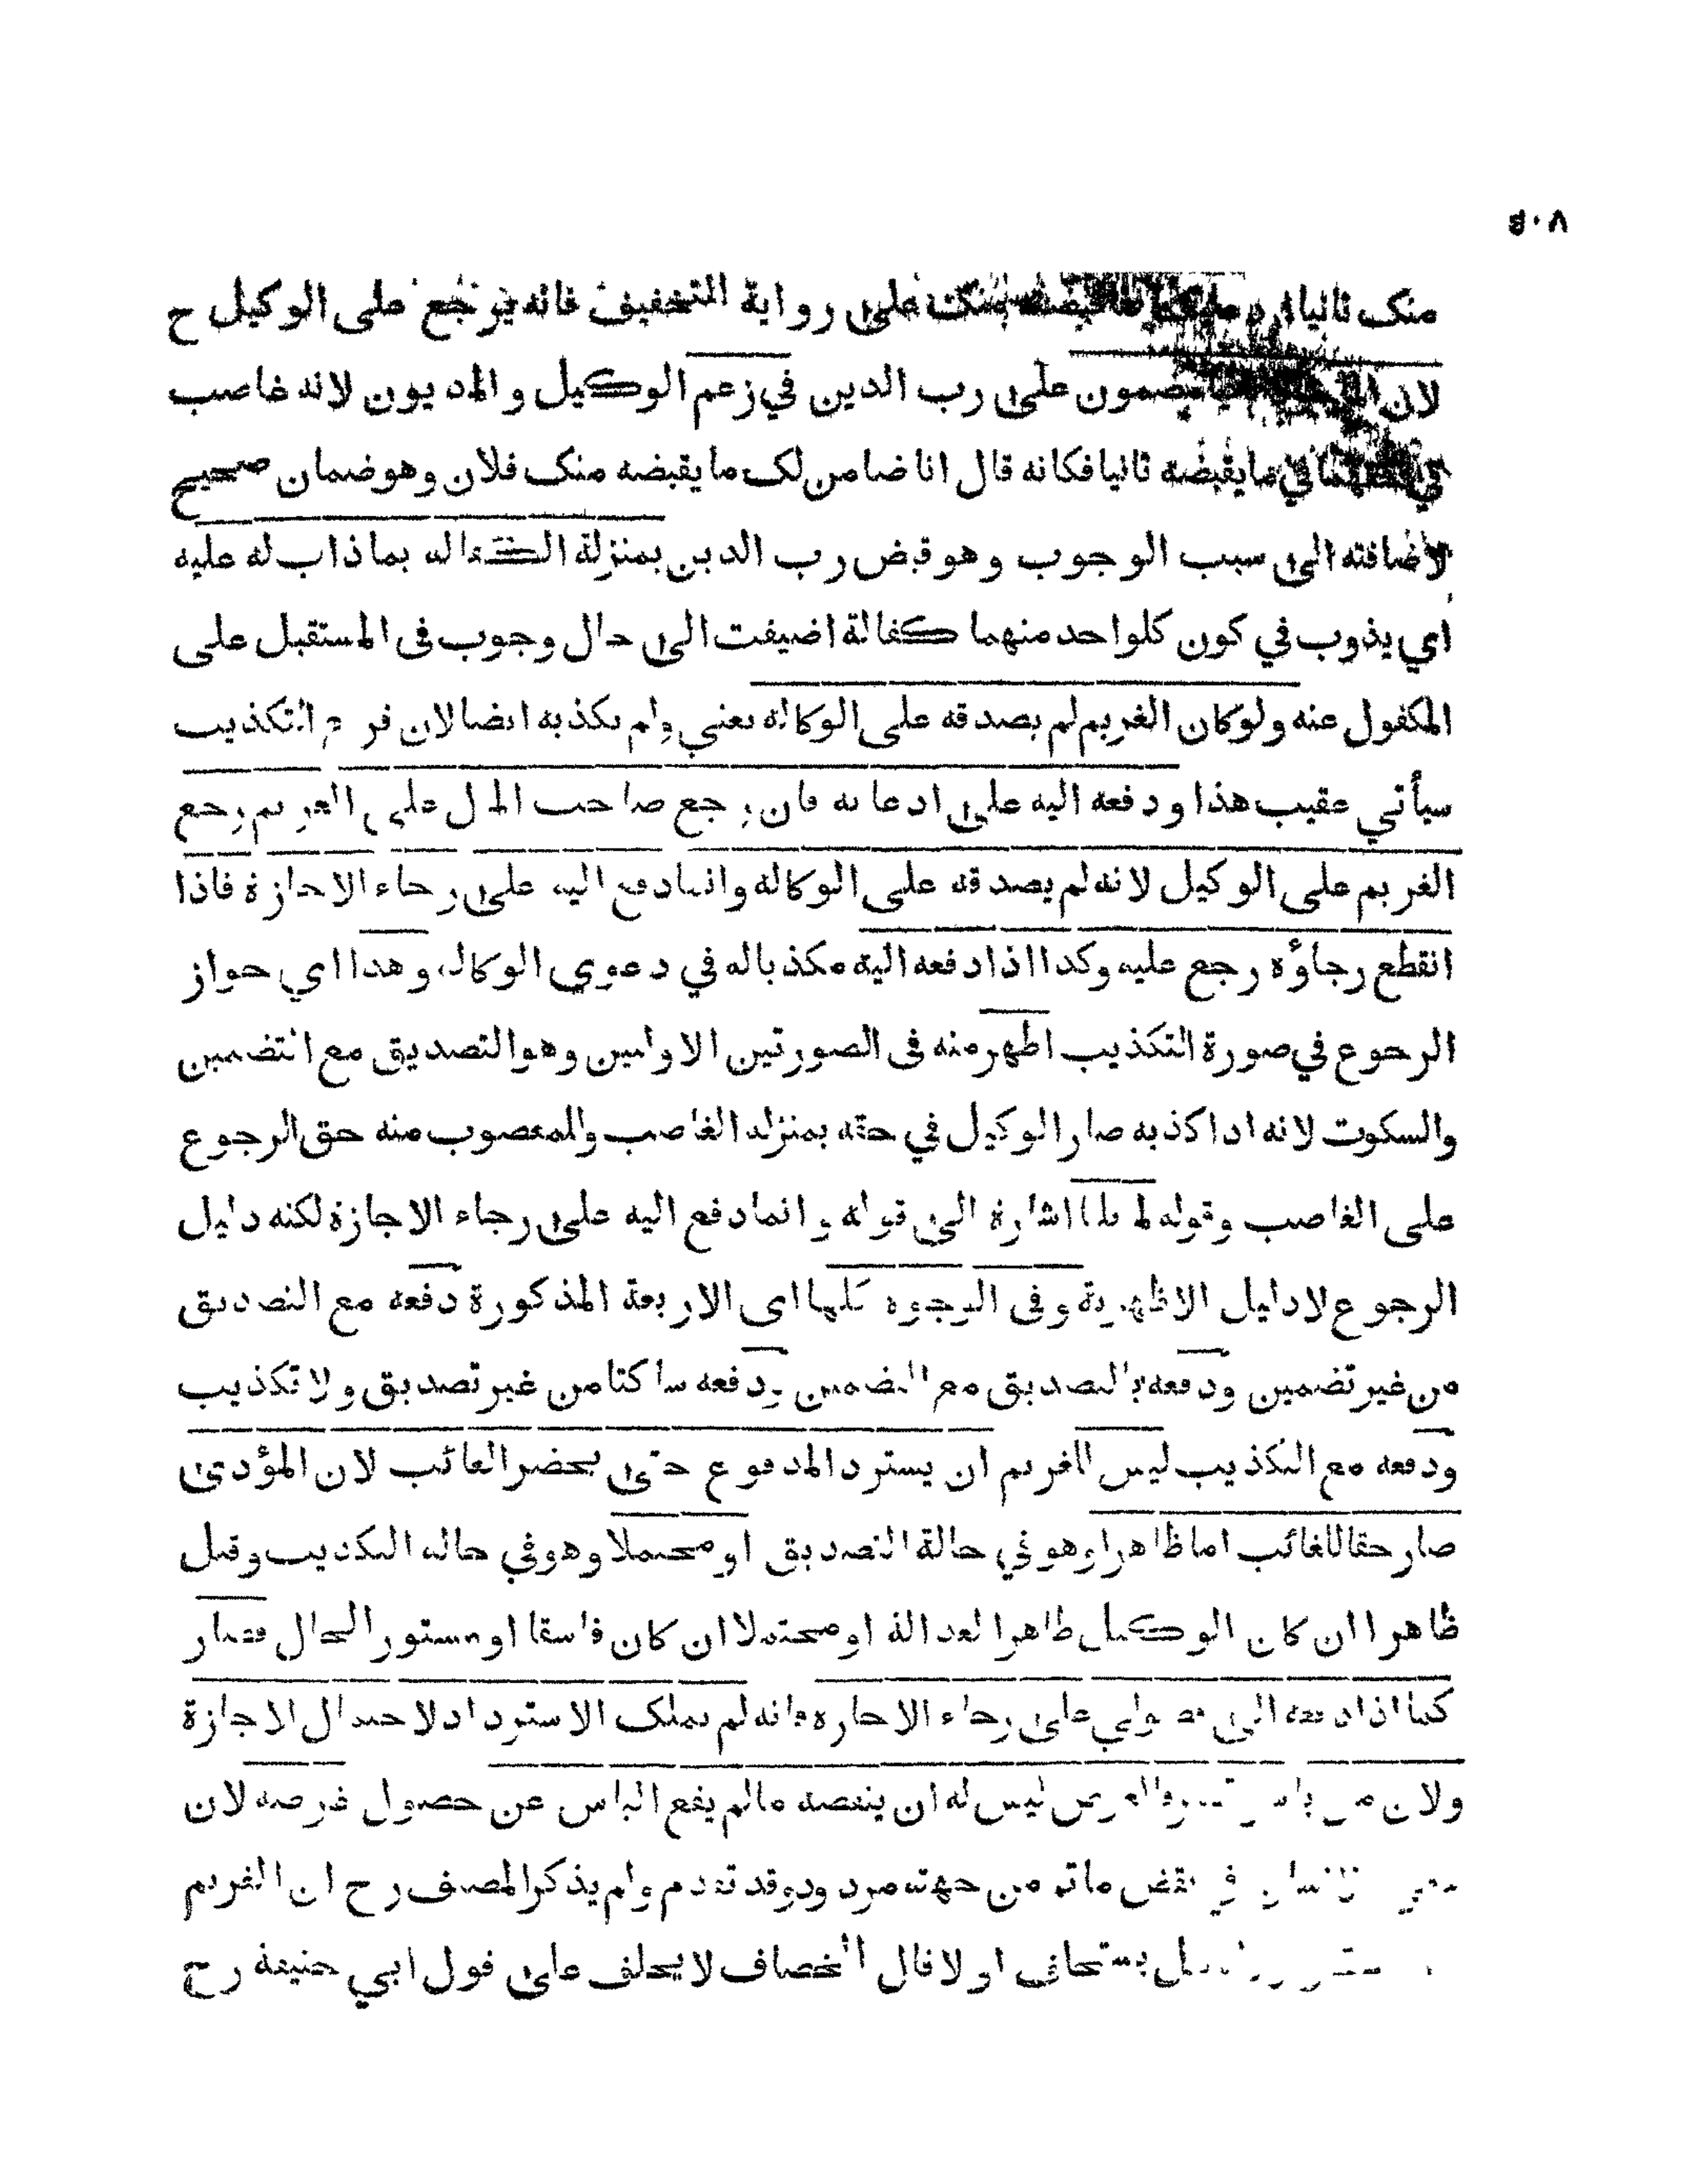 ٨٠٩
منک ثانيا على رواية التخفيف فانه يرجع على الوكيل ح
لان مضمون على رب الدين في زعم الوكيل والمديون لانه غاصب
في ما يقبضه ثانيا فكانه قال انا ضامن لک ما يقبضه منک فلان وهو ضمان صحيح
لاضافته الى سبب الوجوب وهو قبض رب الدين بمنزلة الكفالة بما ذاب له عليه
اي يذوب في كون كل واحد منهما كفالة اضيفت الى حال وجوب فى المستقبل على
المكفول عنه ولو كان الغريم لم يصدقه على الوكالة يعني ولم يكذبه ايضا لان فرع التكذيب
سيأتي عقيب هذا ودفعه اليه على ادعائه فان رجع صاحب المال على الغريم رجع
الغريم على الوكيل لانه لم يصدقه على الوكالة وانما دفع اليه على رجاء الاجازة فاذا
انقطع رجاؤه رجع عليه وكذا اذا دفعه اليه مكذبا له في دعوى الوكالة وهذا اي جواز
الرجوع في صورة التكذيب اظهر منه فى الصورتين الاوليين وهو التصديق مع التضمين
والسكوت لانه اذا كذبه صار الوكيل في حقه بمنزلة الغاصب وللمغصوب منه حق الرجوع
على الغاصب وقوله لما قلنا اشارة الى قوله وانما دفع اليه على رجاء الاجازة لكنه دليل
الرجوع لا دليل الاظهرية وفى الوجوه كلها اى الاربعة المذكورة دفعه مع التصديق
من غير تضمين ودفعه بالتصديق مع التضمين ودفعه ساكتا من غير تصديق ولا تكذيب
ودفعه مع التكذيب ليس للغريم ان يسترد المدفوع حتى يحضر الغائب لان المؤدى
صار حقا للغائب اما ظاهرا وهو في حالة التصديق او محتملا وهو في حالة التكذيب وقيل
ظاهرا ان كان الوكيل ظاهر العدالة او محتملا ان كان فاسقا او مستور الحال فصار
كما اذا دفعه الى فضولي على رجاء الاجازة فانه لم يملک الاسترداد لاحتمال الاجازة
ولان من ليس له ان ينقضه ما لم يقع الياس عن حصول غرضه لان
نقض ما تم من جهته مردود وقد تقدم ولم يذكر المصنف رح ان الغريم
يستحلف او لا قال الخصاف لا يحلف على قول ابي حنيفة رح